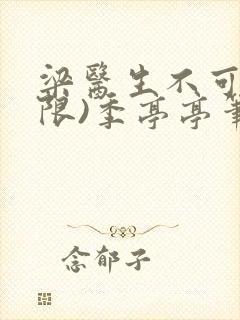 梁醫生不可
限)季亭亭筆
念郁子